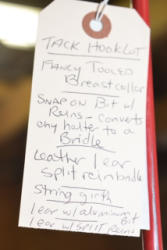 TACK HOOK LOT
FANCY TOOLED
Breastcollar
SNAP ON Bit w/
Reins - converts
any halter to a
Bridle
Leather 1 ear
split rein bridle
String girth
1 ear w/ aluminum Bit
1 ear w/ SPLIT Reins